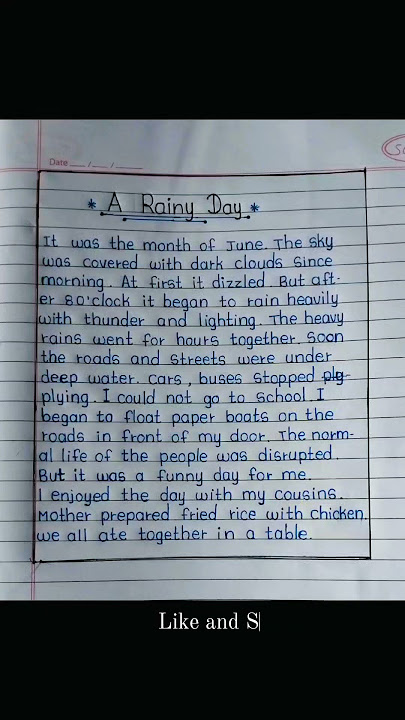 Date ___/___/___
* A Rainy Day *
It was the month of June. The sky
was covered with dark clouds since
morning. At first it dizzled. But aft-
er 8 O'clock it began to rain heavily
with thunder and lighting. The heavy
rains went for hours together. Soon
the roads and streets were under
deep water. Cars, buses stopped plg
plying. I could not go to school. I
began to float paper boats on the
roads in front of my door. The norm-
al life of the people was disrupted.
But it was a funny day for me.
I enjoyed the day with my cousins.
Mother prepared fried rice with chicken.
we all ate together in a table.
Like and S